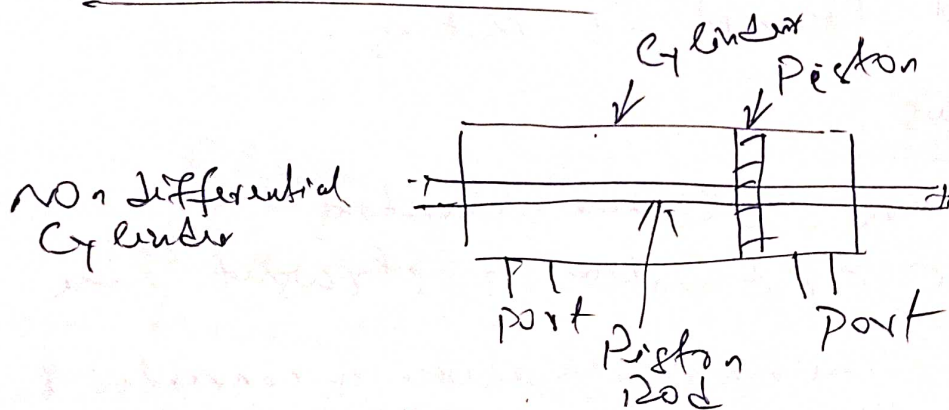 Cylinder
Piston
Non differential
Cylinder
port
Piston
rod
port